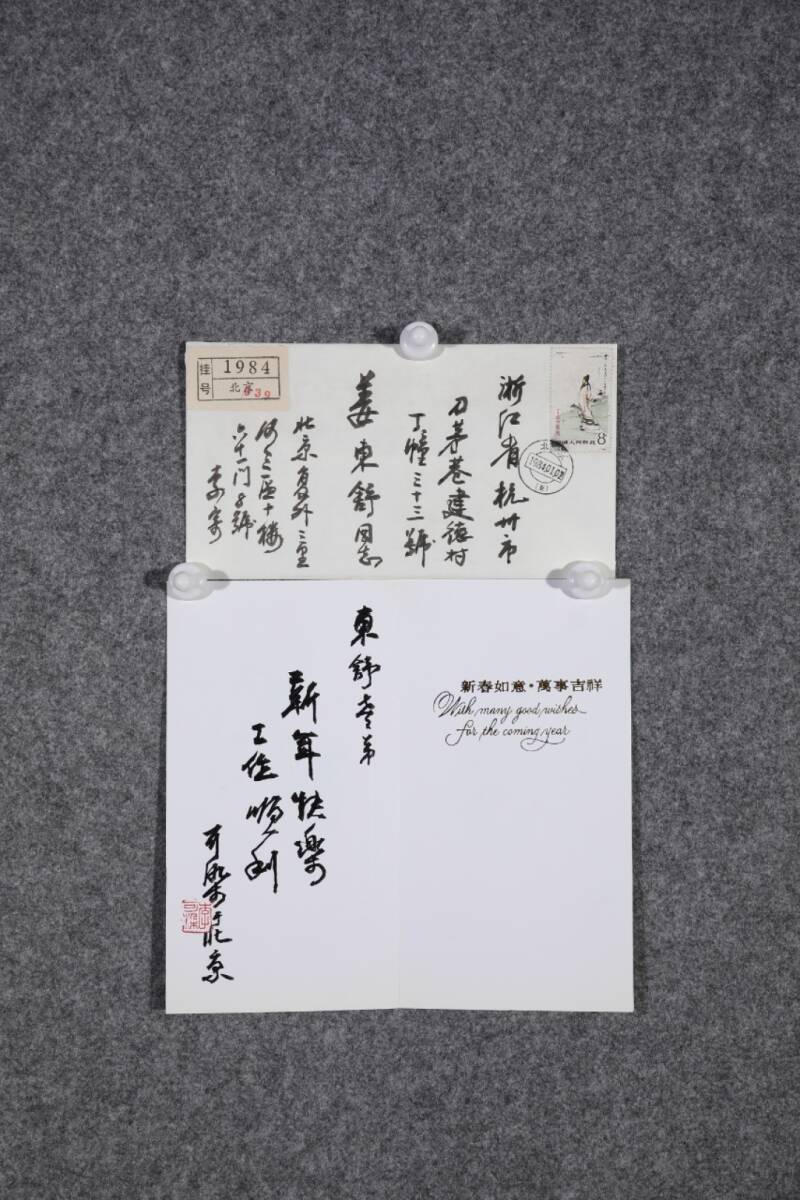 挂号
1984
北京
039
8
1984.01.01
浙江省杭州市
刀茅巷建德村
丁幢三十三號
姜東舒同志
北京復外三里
河三區十樓
六十一門8號
李寄
東舒老弟
新年快樂
工作順利
可染于北京
新春如意·萬事吉祥
With many good wishes
for the coming year